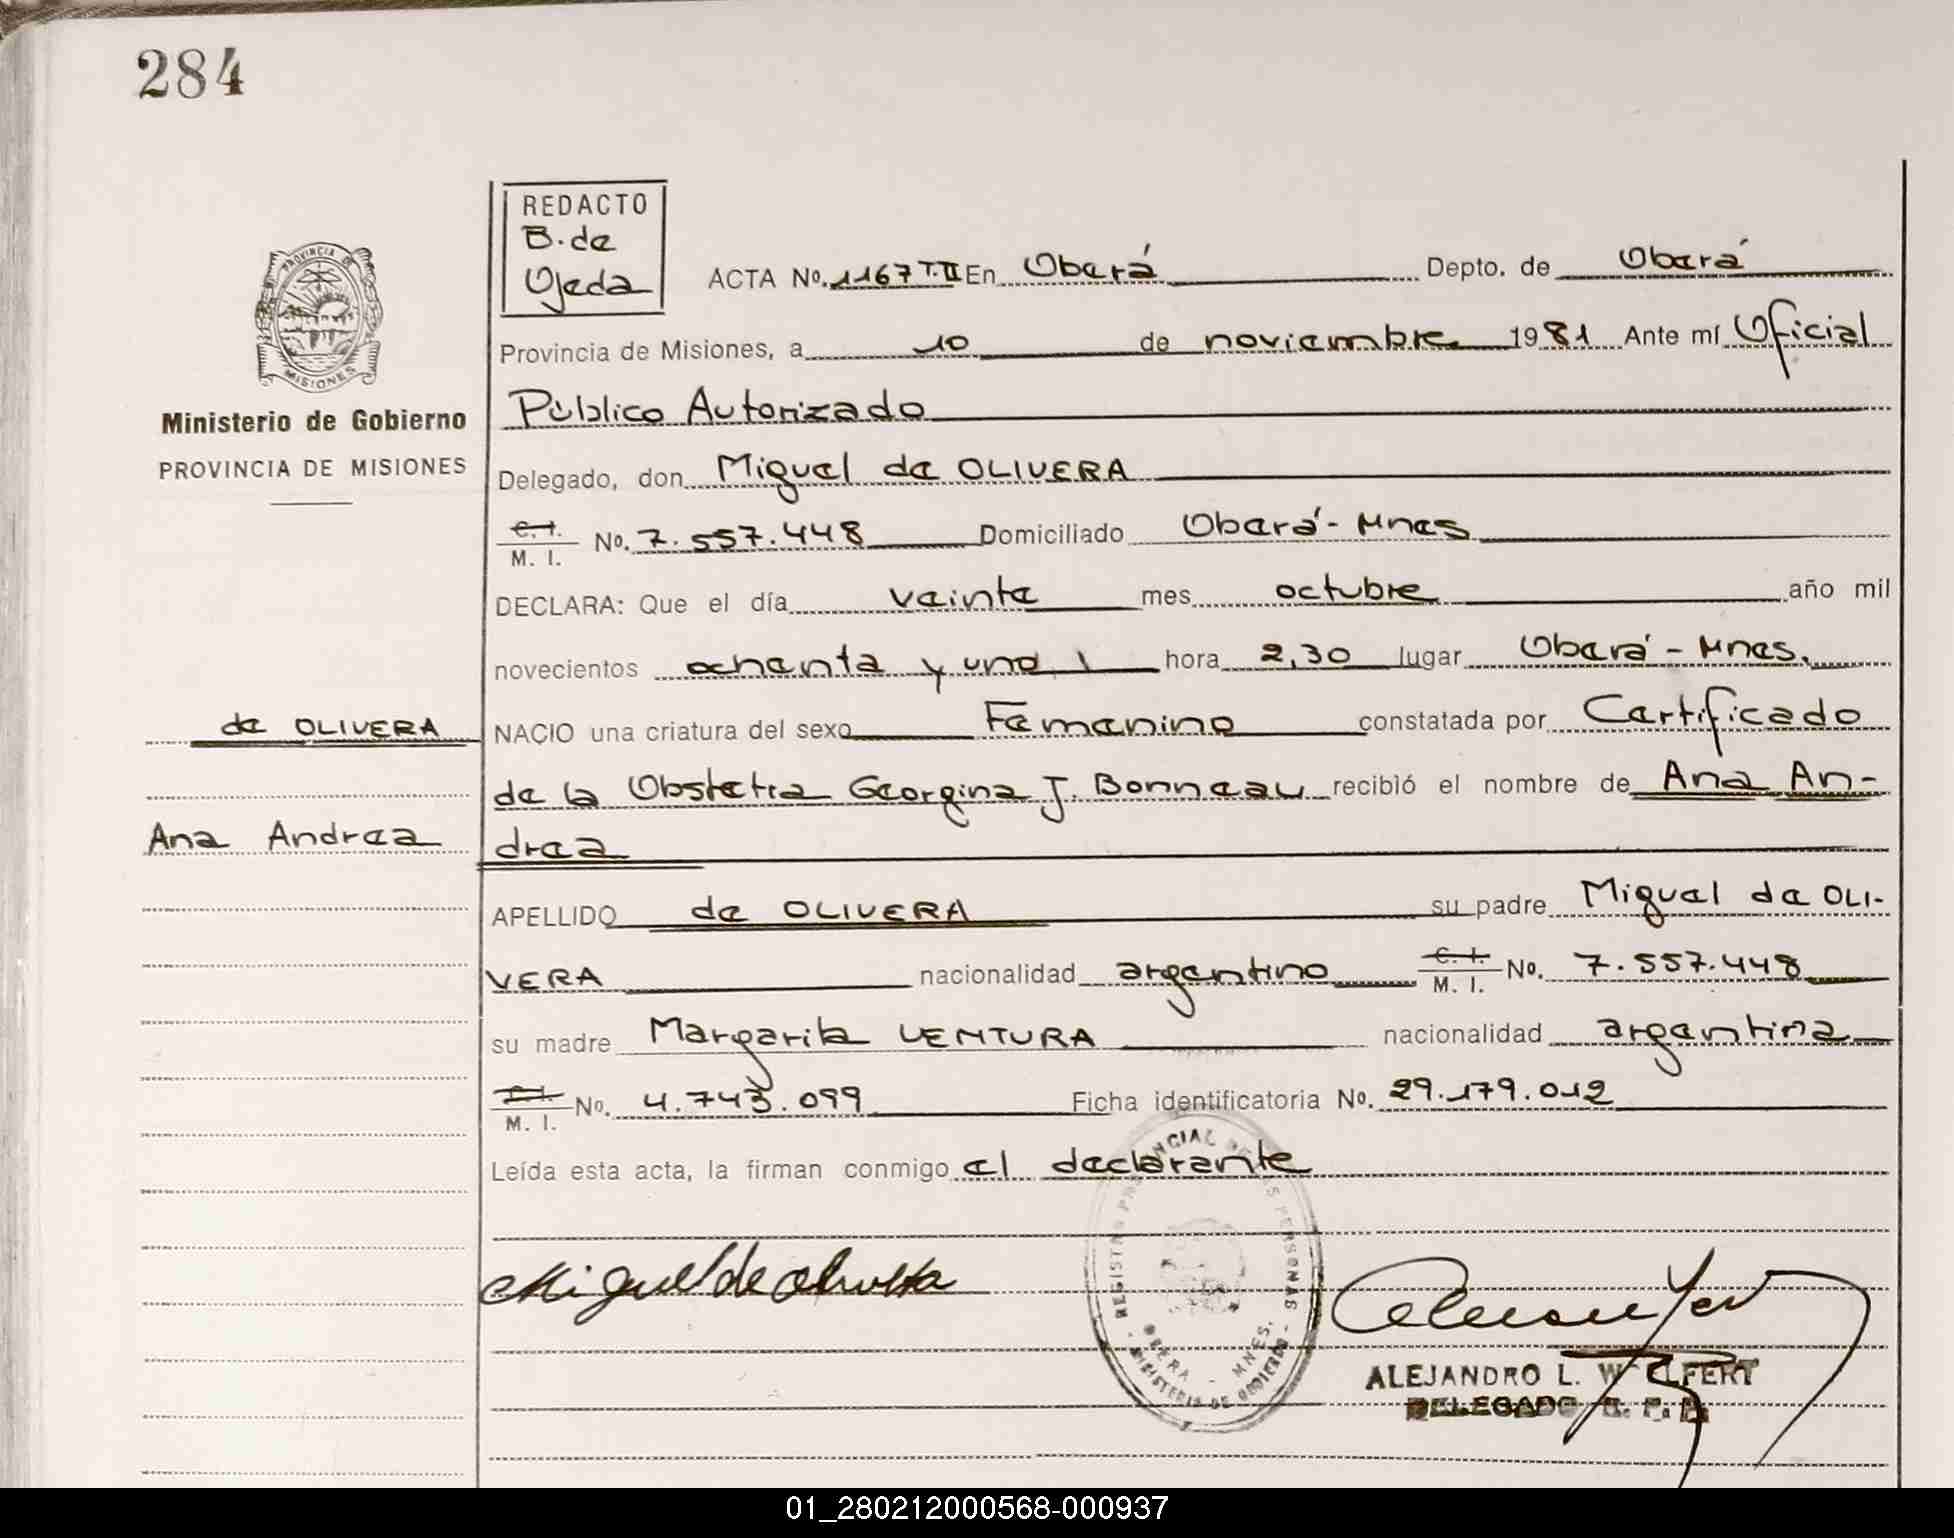 284
REDACTO
B. de
Ojeda
ACTA No. 1167 T.II En Oberá Depto. de Oberá
Provincia de Misiones, a 10 de noviembre 1981 Ante mí Oficial
Público Autorizado
Delegado, don Miguel de OLIVERA
C. I.
M. I. No. 7.557.448 Domiciliado Oberá - Mnes
DECLARA: Que el día veinte mes octubre año mil
novecientos ochenta y uno hora 2,30 lugar Oberá - Mnes.
NACIO una criatura del sexo Femenino constatada por Certificado
de la Obstetra Georgina J. Bonneau recibió el nombre de Ana An-
drea
APELLIDO de OLIVERA su padre Miguel de OLI-
VERA nacionalidad argentino C. I.
M. I. No. 7.557.448
su madre Margarita VENTURA nacionalidad argentina
C. I.
M. I. No. 4.743.099 Ficha identificatoria No. 29.179.012
Leída esta acta, la firman conmigo el declarante
PROVINCIA DE
MISIONES
Ministerio de Gobierno
PROVINCIA DE MISIONES
de OLIVERA
Ana Andrea
Miguel de
REGISTRO PROVINCIAL DE LAS PERSONAS
OBERA - MNES.
MINISTERIO DE GOBIERNO
ALEJANDRO L.
DELEGADO R. P. P.
01_280212000568-000937